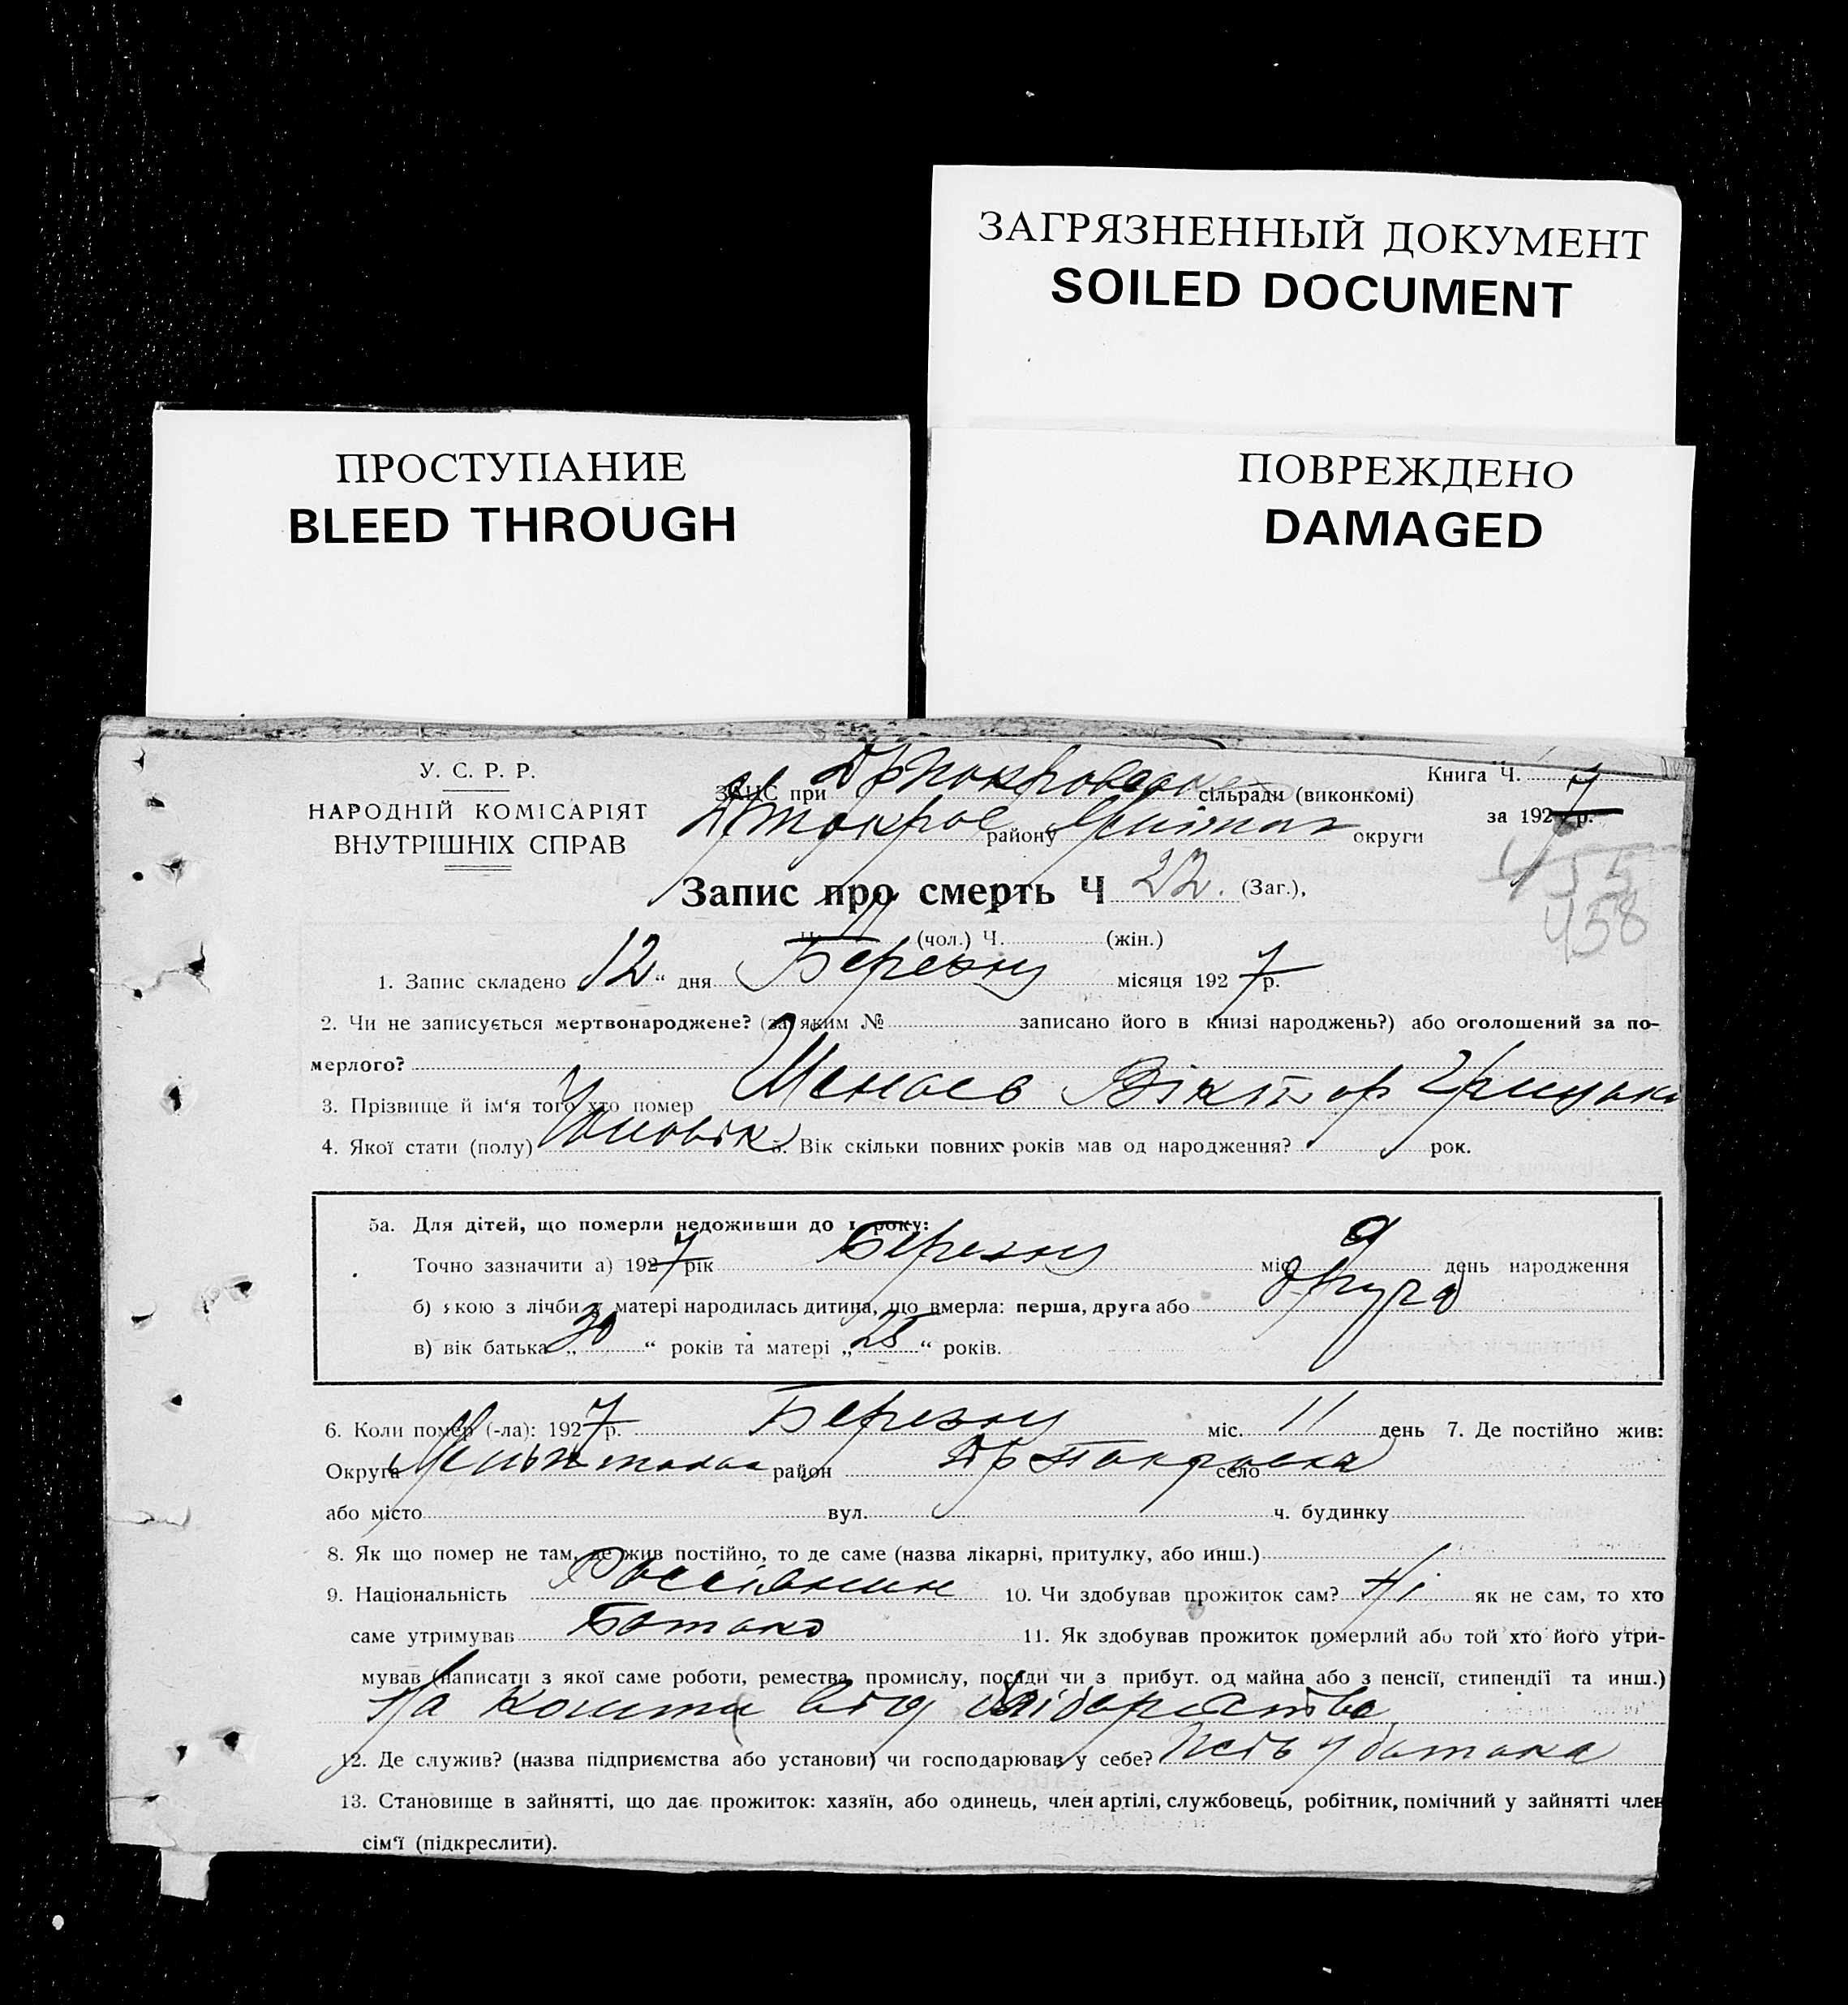 ЗАГРЯЗНЕННЫЙ ДОКУМЕНТ
SOILED DOCUMENT
ПРОСТУПАНИЕ
BLEED THROUGH
ПОВРЕЖДЕНО
DAMAGED
У. С. Р. Р.
НАРОДНІЙ КОМІСАРІЯТ
ВНУТРІШНІХ СПРАВ
Книга Ч.
ЗАЦС при сільради (виконкомі)
за 1927 р.
району округи
Запис про смерть Ч 22. (Заг.),
Ч. 11 (чол.) Ч. (жін.)
458
1. Запис складено 12 “ дня Березня місяця 1927 р.
2. Чи не записується мертвонароджене? (за яким № записано його в книзі народжень?) або оголошений за по-
мерлого?
3. Прізвище й ім‘я того хто помер Віктор
4. Якої стати (полу) Чоловік 5. Вік скільки повних років мав од народження? рок.
5а. Для дітей, що померли недоживши до 1 року:
Точно зазначити а) 1927 рік Березня міс. 9 день народження
б) якою з лічби у матері народилась дитина, що вмерла: перша, друга або друга
в) вік батька „ 30 “ років та матері „ 25 “ років.
6. Коли помер (-ла): 1927 р. Березня міс. 11 день 7. Де постійно жив:
Округа район село
або місто вул. ч. будинку
8. Як що помер не там, де жив постійно, то де саме (назва лікарні, притулку, або инш.)
9. Національність Россіянин 10. Чи здобував прожиток сам? Ні як не сам, то хто
саме утримував Батько 11. Як здобував прожиток померлий або той хто його утри-
мував (написати з якої саме роботи, ремества, промислу, посади чи з прибут. од майна або з пенсії, стипендії та инш.)
На кошти від хліборобства
12. Де служив? (назва підприємства або установи) чи господарював у себе? у батька
13. Становище в зайнятті, що дає прожиток: хазяїн, або одинець, член артілі, службовець, робітник, помічний у зайнятті член
сім‘ї (підкреслити).